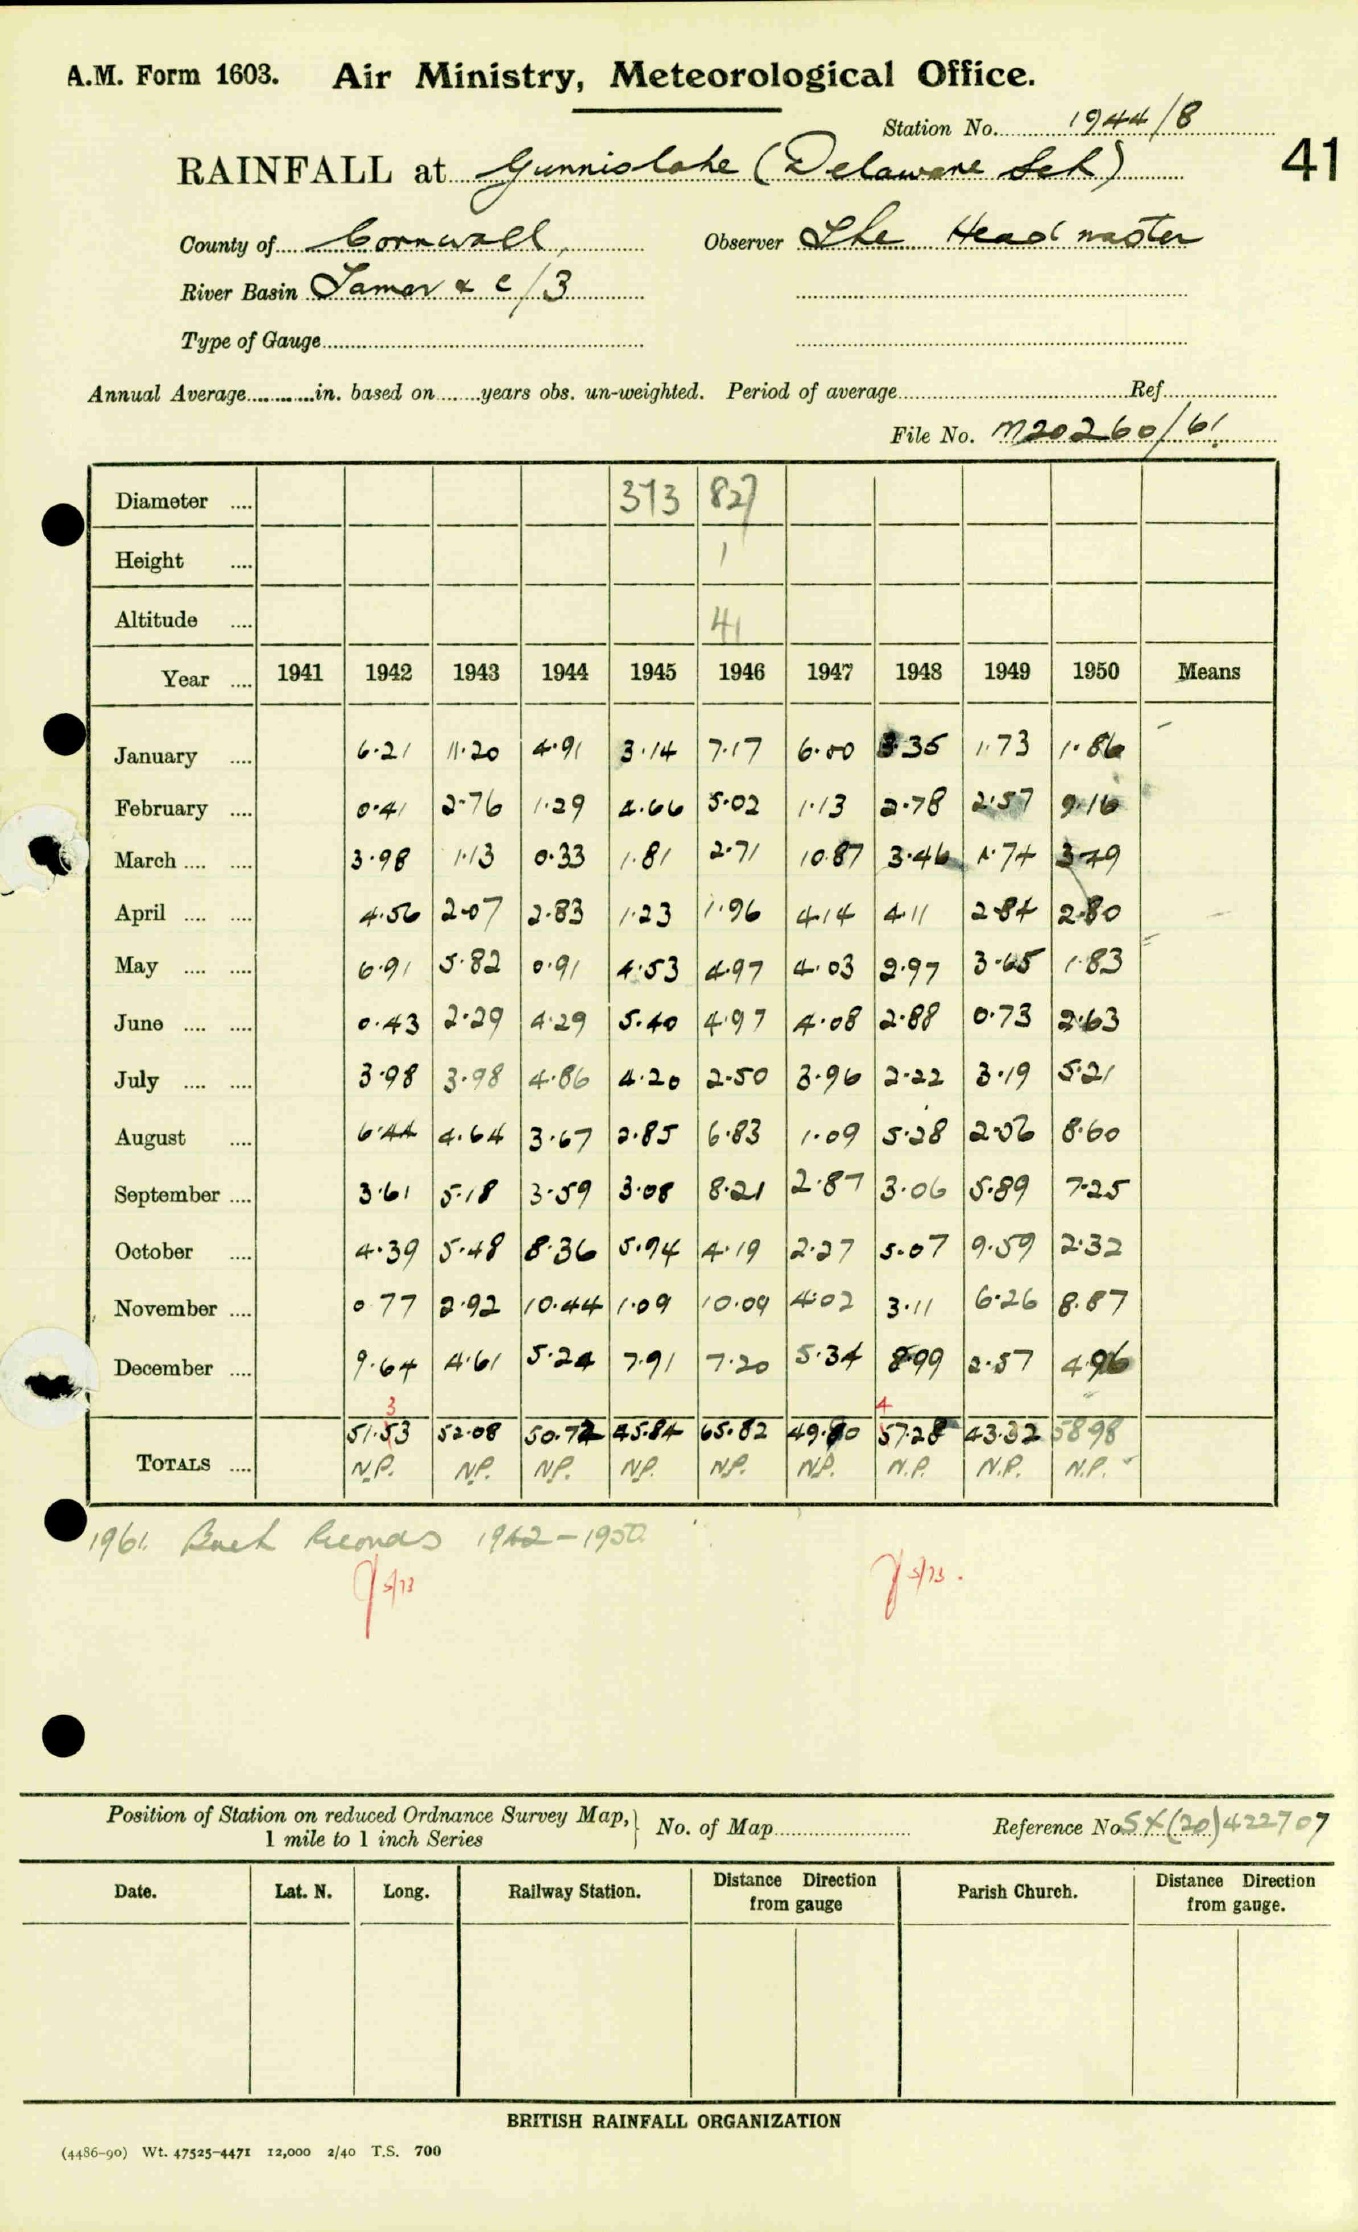 A.M. Form 1603. Air Ministry, Meteorological Office.
Station No. 1944/8
41
RAINFALL at Gunnislake (Delaware Sch)
County of Cornwall, Observer The Headmaster
River Basin Tamar & c/3
Type of Gauge
Annual Average in. based on years obs. un-weighted. Period of average Ref
File No. M20260/61
Diameter 373 827
Height 1
Altitude 41
Year 1941 1942 1943 1944 1945 1946 1947 1948 1949 1950 Means
January 6.21 11.20 4.91 3.14 7.17 6.00 3.35 1.73 1.86
February 0.41 2.76 1.29 4.66 5.02 1.13 2.78 2.57 9.16
March 3.98 1.13 0.33 1.81 2.71 10.87 3.46 1.74 3.49
April 4.56 2.07 2.83 1.23 1.96 4.14 4.11 2.84 2.80
May 6.91 5.82 0.91 4.53 4.97 4.03 2.97 3.65 1.83
June 0.43 2.29 4.29 5.40 4.97 4.08 2.88 0.73 2.63
July 3.98 3.98 4.86 4.20 2.50 3.96 2.22 3.19 5.21
August 6.44 4.64 3.67 2.85 6.83 1.09 5.28 2.06 8.60
September 3.61 5.18 3.59 3.08 8.21 2.87 3.06 5.89 7.25
October 4.39 5.48 8.36 5.94 4.19 2.27 5.07 9.59 2.32
November 0.77 2.92 10.44 1.09 10.09 4.02 3.11 6.26 8.87
December 9.64 4.61 5.24 7.91 7.20 5.34 8.99 2.57 4.96
3 4
51.53 52.08 50.72 45.84 65.82 49.80 57.28 43.32 58.98
TOTALS N.P. N.P. N.P. N.P. N.P. N.P. N.P. N.P. N.P.
1961. Back Records 1942-1950
5/73 5/73.
Position of Station on reduced Ordnance Survey Map,
1 mile to 1 inch Series
No. of Map Reference No SX(20)422707
Date. Lat. N. Long. Railway Station. Distance Direction from gauge Parish Church. Distance Direction from gauge.
BRITISH RAINFALL ORGANIZATION
(4486-90) Wt. 47525-4471 12,000 2/40 T.S. 700